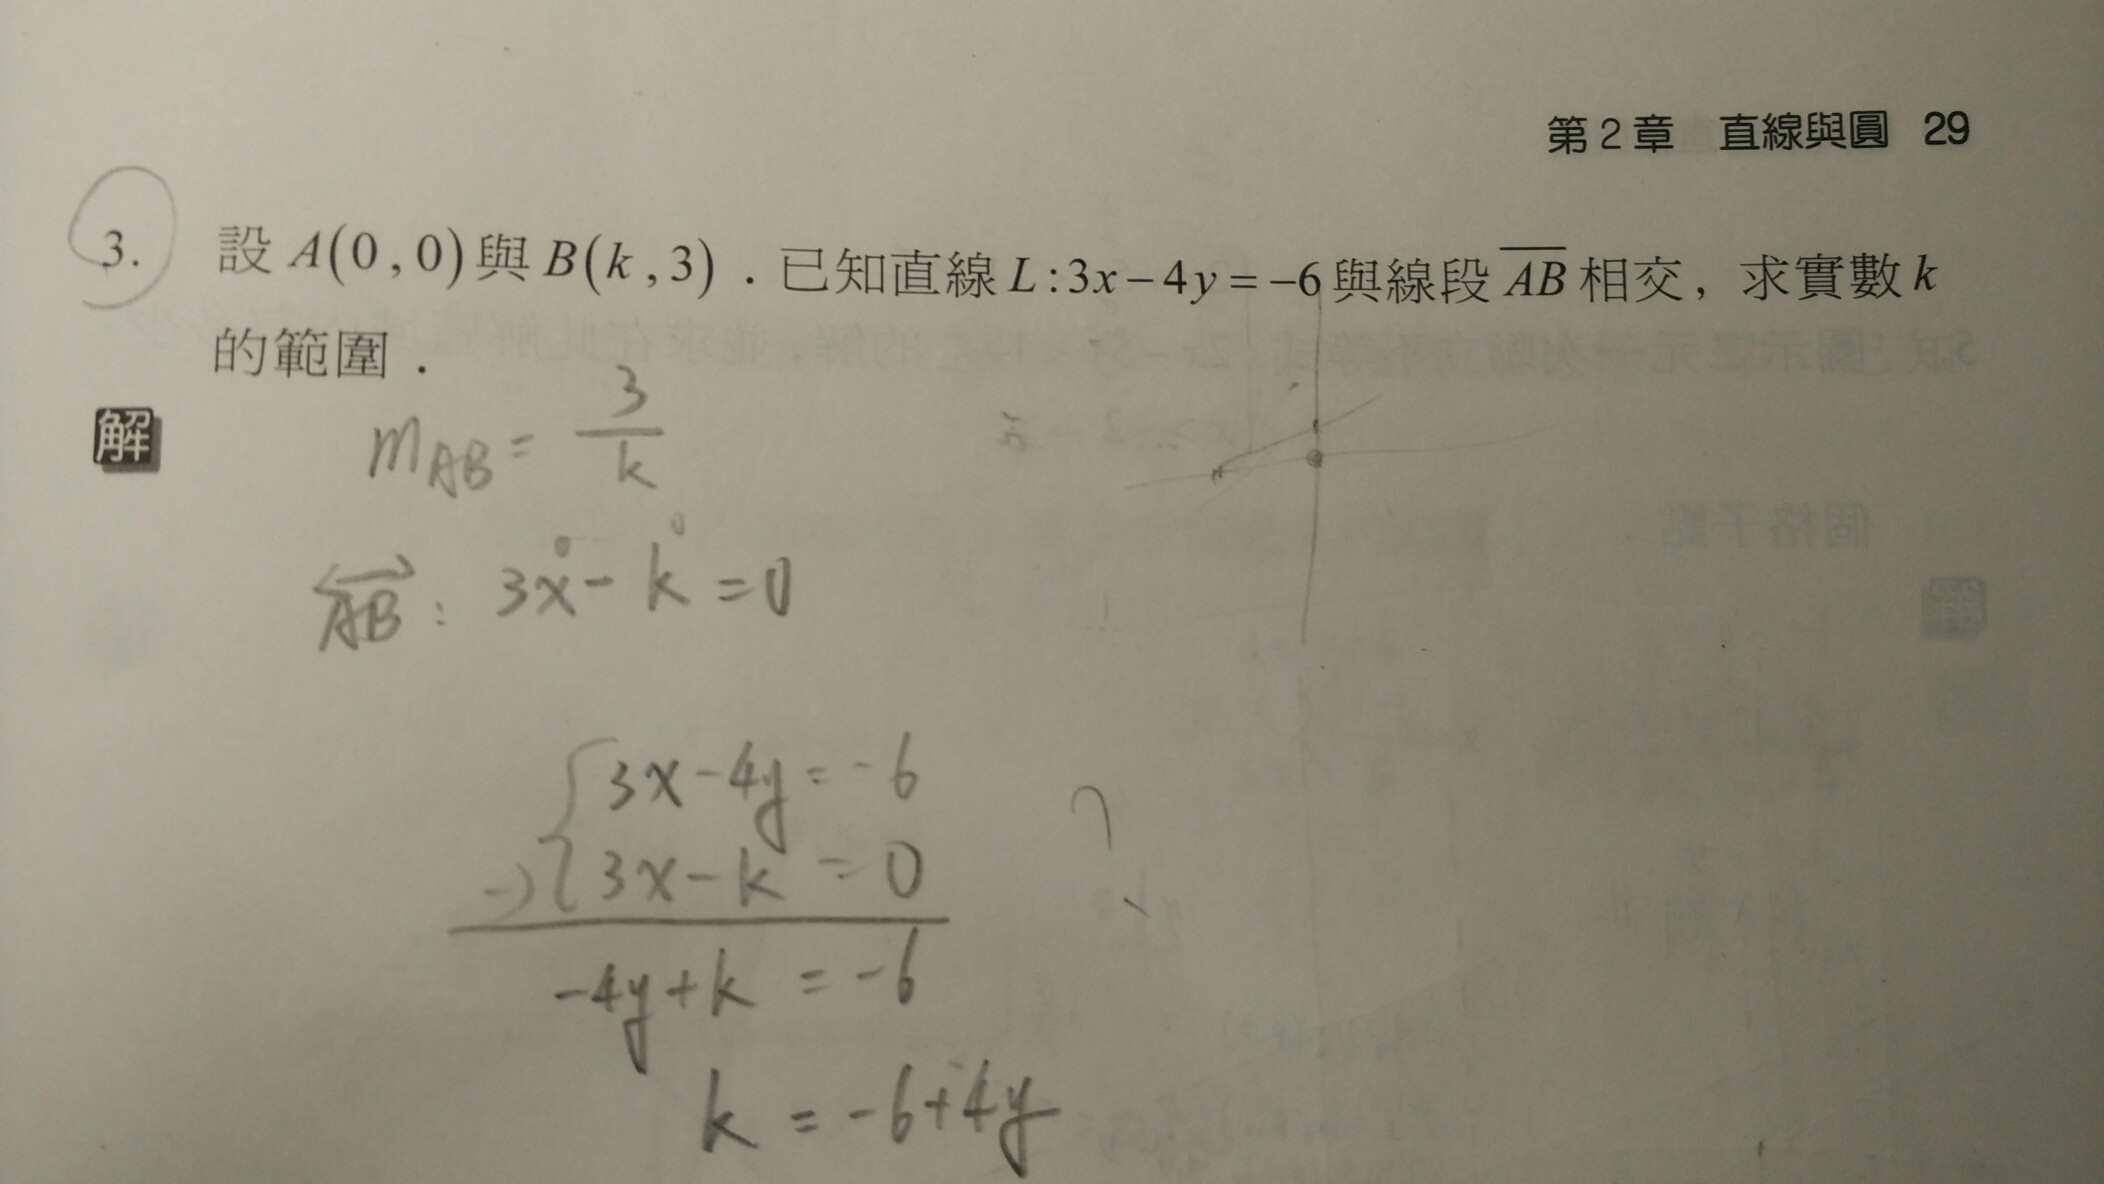 第2章 直線與圓 29
3. 設 A(0,0) 與 B(k,3)．已知直線 L:3x−4y=−6 與線段 \overline{AB} 相交，求實數 k
的範圍．
解
m_{AB} = \frac{3}{k}
\overleftrightarrow{AB} : 3x − k = 0
3x−4y = −6
−) 3x−k = 0
−4y+k = −6
k = −6+4y